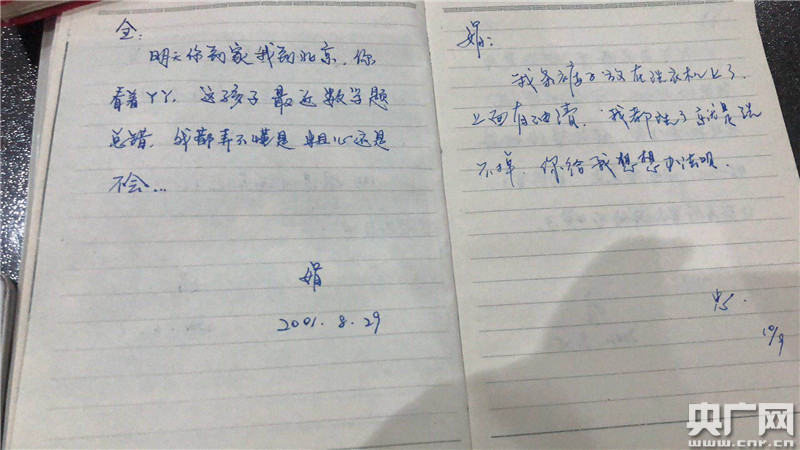 全：
明天你到家我到北京，你
看着丫丫，这孩子最近数学题
总错，我都弄不懂是粗心还是
不会...
娟
2001.8.29
娟：
我条裤子放在洗衣机上了，
上面有油渍，我都洗了就是洗
不掉，你给我想想办法呗．
10/9
央广网
www.cnr.cn